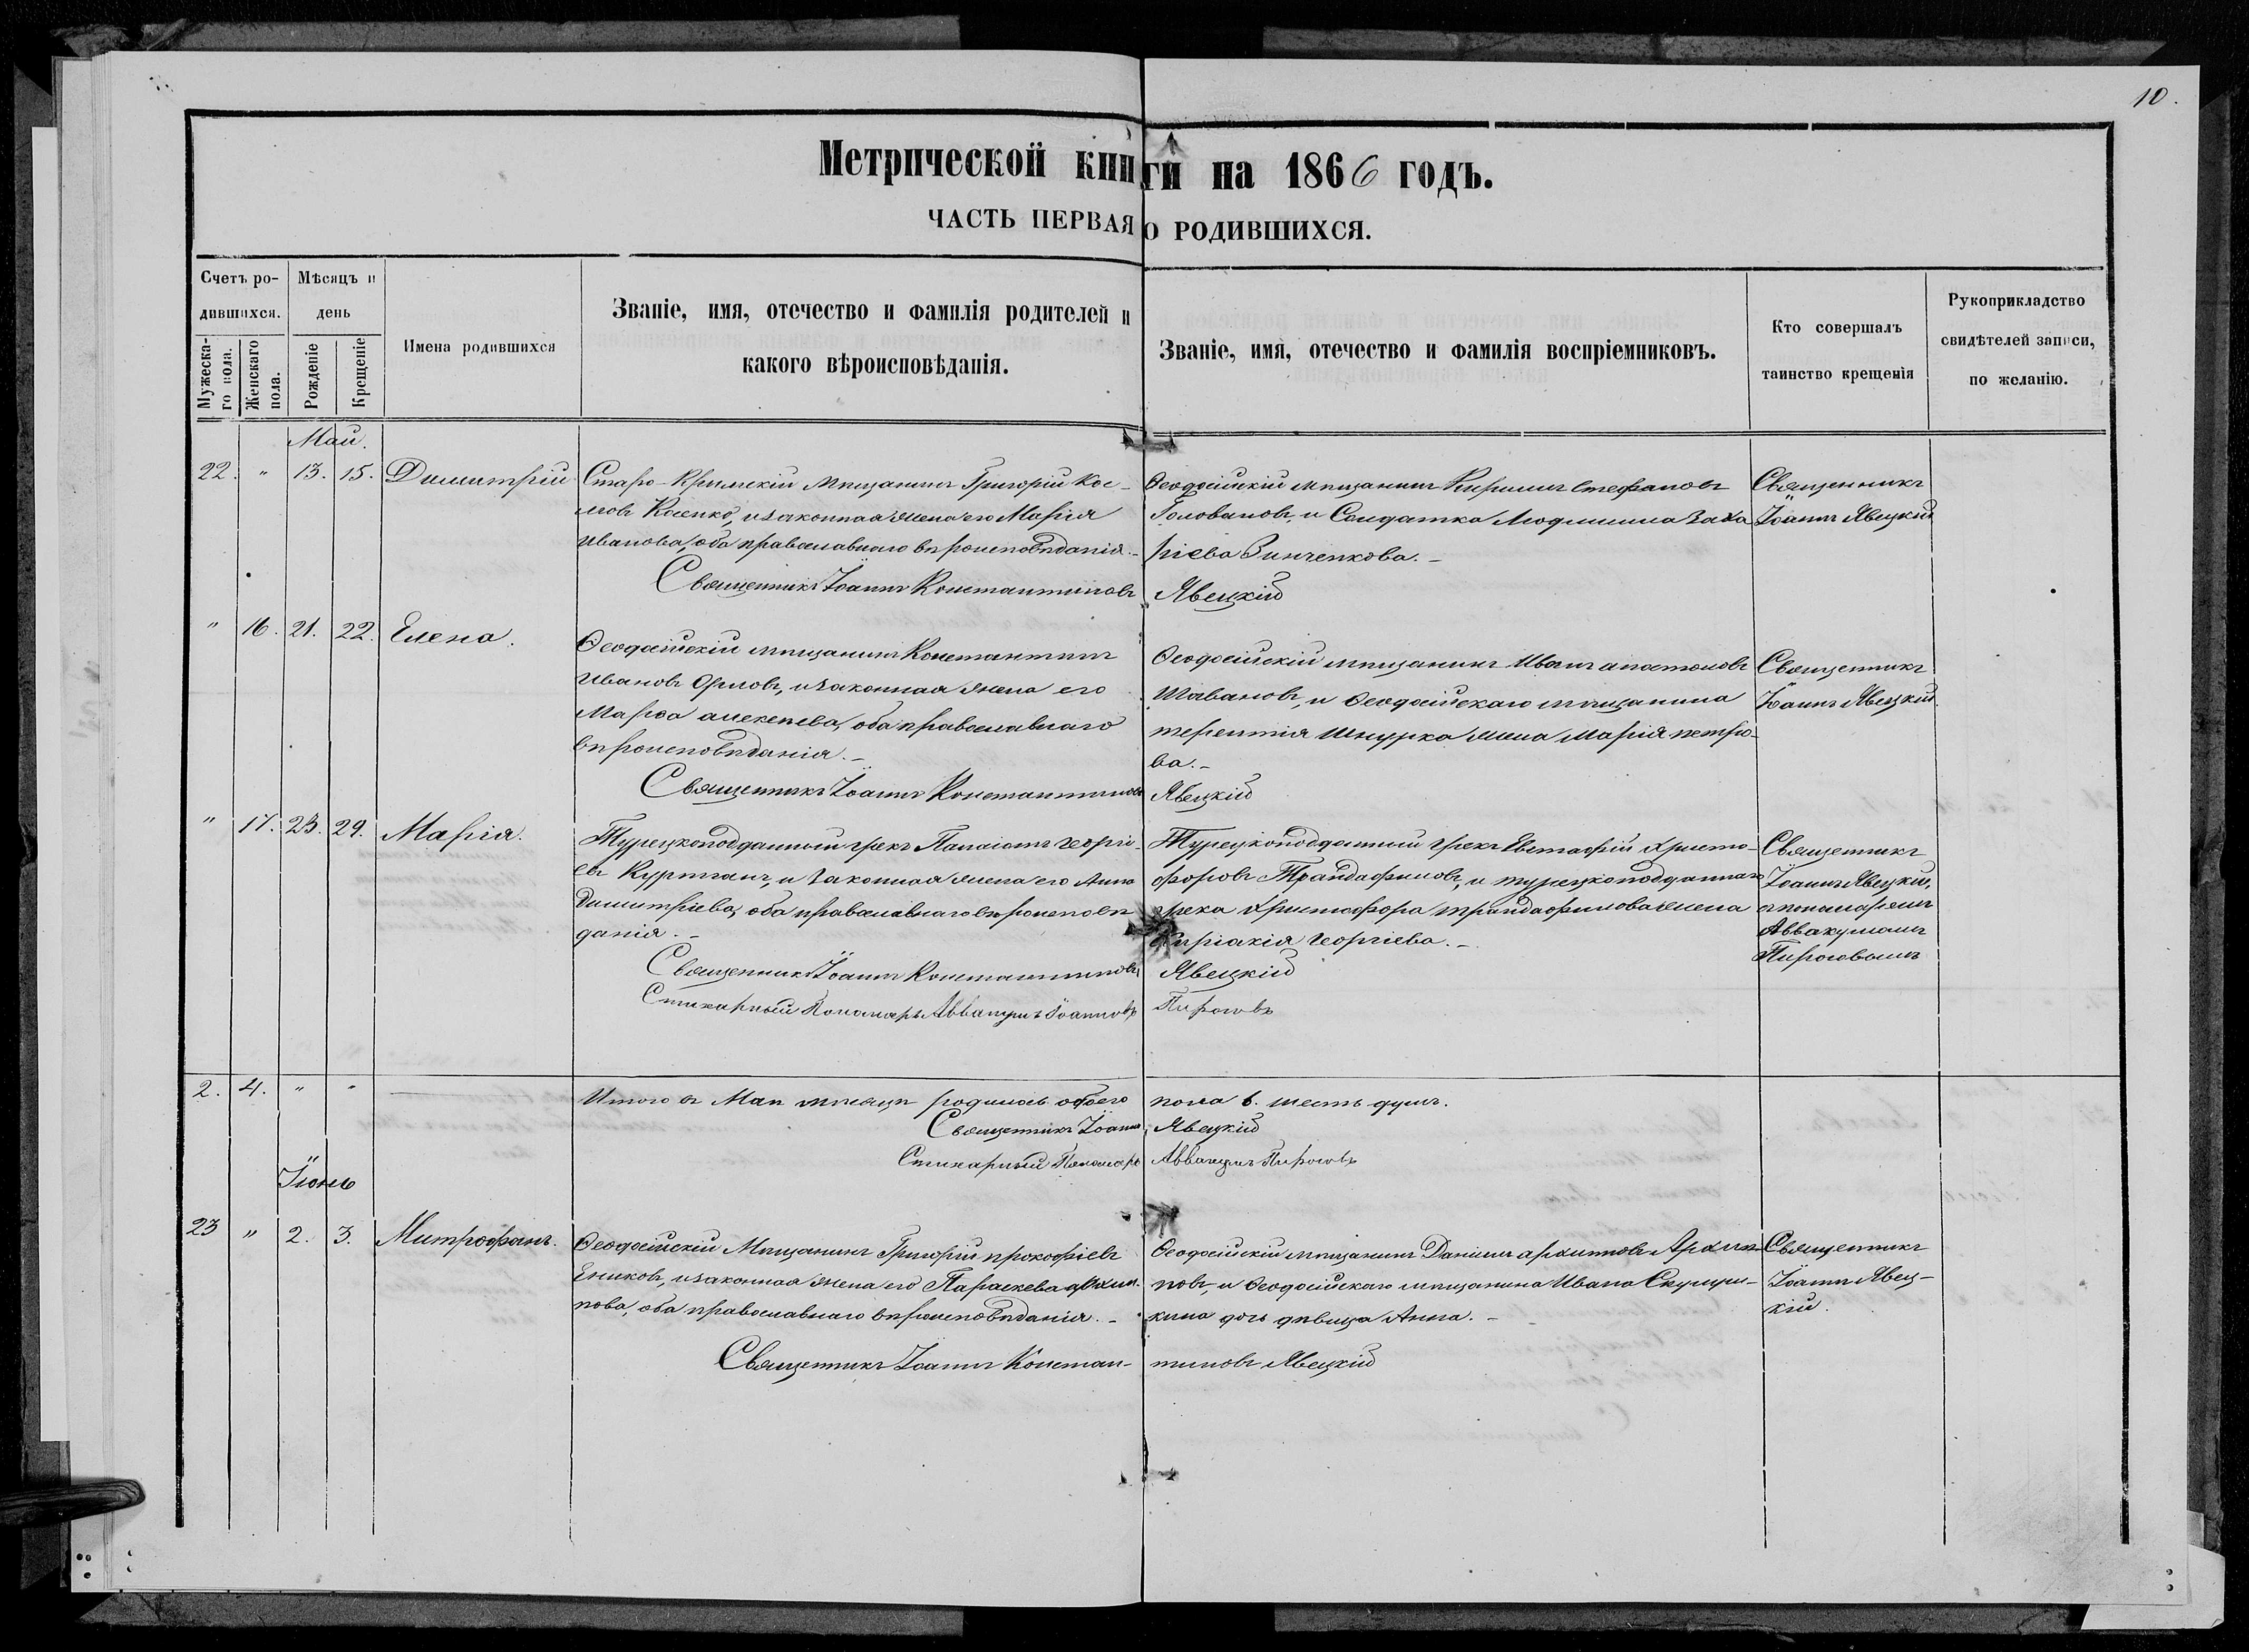 10.
Метрической книги на 1866 годъ.
ЧАСТЬ ПЕРВАЯ О РОДИВШИХСЯ.
Счетъ ро-
дившихся.
Мужеска-
го пола.
Женскаго
пола.
Мѣсяцъ и
день
Рожденіе
Крещеніе
Имена родившихся
Званіе, имя, отечество и фамилія родителей и
какого вѣроисповѣданія.
Званіе, имя, отечество и фамилія воспріемниковъ.
Кто совершалъ
таинство крещенія
Рукоприкладство
свидѣтелей записи,
по желанію.
Май.
22. " 13. 15. Димитрій
Старо-Крымскій мѣщанинъ Григорій Кос-
мовъ Касенко, и законная жена его Марія
Иванова, оба православнаго вѣроисповѣданія.-
Ѳеодосійскій мѣщанинъ Кирилъ Стефановъ
Головановъ, и Солдатка Людмилла Заха
ріева Зинченкова.-
Священникъ
Іоаннъ Явецкій
Священникъ Іоаннъ Константиновъ Явецкій
" 16. 21. 22. Елена.
Ѳеодосійскій мѣщанинъ Константинъ
Ивановъ Орловъ, и законная жена его
Марѳа алексѣева, оба православнаго
вѣроисповѣданія.-
Ѳеодосійскій мѣщанинъ Иванъ апостоловъ
Шавановъ, и Ѳеодосійскаго мѣщанина
терентія Шнурка жена Марія петро-
ва.-
Священникъ
Іоаннъ Явецкій.
Священникъ Іоаннъ Константиновъ Явецкій
" 17. 23. 29. Марія.
Турецкоподданный грекъ Панаіотъ георгі-
евъ Куртганъ, и законная жена его Анна
Димитріева, оба православнаго вѣроисповѣ
данія.-
Турецкоподданный грекъ Евстафій Христо-
форовъ Трандафиловъ, и турецкоподданнаго
грека Христофора трандафилова жена
Киріакія георгіева.-
Священникъ
Іоаннъ Явецкій,
съ пономаремъ
Аввакумомъ
Пироговымъ
Священникъ Іоаннъ Константиновъ Явецкій
Стихарный Пономарь Аввакумъ Іоанновъ Пироговъ
2. 4. " "
Итого въ Маѣ мѣсяцѣ родилось обоего пола 6. шесть душъ.
Священникъ Іоаннъ Явецкій
Стихарный Пономарь Аввакумъ Пироговъ
Іюнь
23 " 2. 3. Митрофанъ.
Ѳеодосійскій Мѣщанинъ Григорій прокофіевъ
Ениковъ, и законная жена его Параскева архип-
пова, оба православнаго вѣроисповѣданія.-
Ѳеодосійскій мѣщанинъ Даніилъ архипповъ Архип-
повъ, и Ѳеодосійскаго мѣщанина Ивана
кина дочь дѣвица Анна.-
Священникъ
Іоаннъ Явец-
кій.
Священникъ Іоаннъ Константиновъ Явецкій